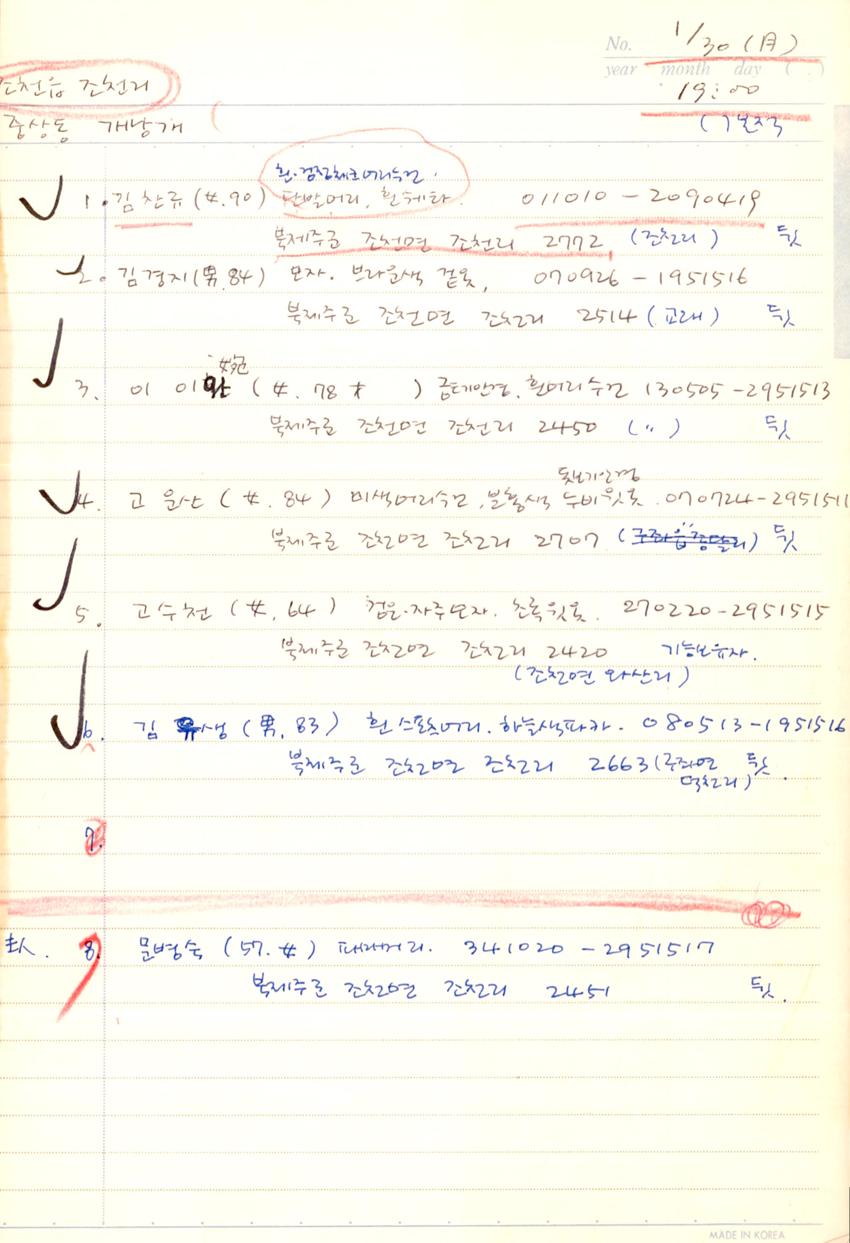 No. 1/30 (月)
year month day ( )
조천읍 조천리
19:00
중상동 개낭개
( )본적
흰·검정체크머리수건.
1. 김찬규 (女.90) 단발머리, 흰세타. 011010-2090419
북제주군 조천면 조천리 2772 (조천리) 뒷
2. 김경지 (男.84) 모자. 브라운색 겉옷, 070926-1951516
북제주군 조천면 조천리 2514 (교래) 뒷
3. 이이 (女. 78 ) 금테안경. 흰머리수건 130505-2951513
북제주군 조천면 조천리 2450 (〃) 뒷
돋보기안경
4. 고운산 (女. 84) 미색머리수건, 분홍색 누비윗옷. 070724-2951511
북제주군 조천면 조천리 2707 (구좌읍 종달리) 뒷
5. 고수천 (女, 64) 검은·자주모자. 초록윗옷. 270220-2951515
북제주군 조천면 조천리 2420 기능보유자.
(조천면 와산리)
6. 김 생 (男, 83) 흰 스포츠머리. 하늘색파카. 080513-1951516
북제주군 조천면 조천리 2663 (구좌면 뒷
덕천리).
7.
主人. 8. 문병숙 (57. 女) 파마머리. 341020-2951517
북제주군 조천면 조천리 2451 뒷.
MADE IN KOREA